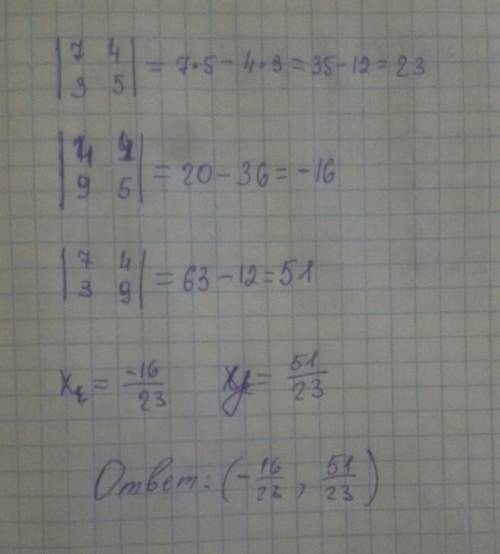 |7 4|
|3 5| = 7·5 - 4·3 = 35 - 12 = 23
|4 4|
|9 5| = 20 - 36 = -16
|7 4|
|3 9| = 63 - 12 = 51
x = -16/23 y = 51/23
Ответ: (-16/23, 51/23)